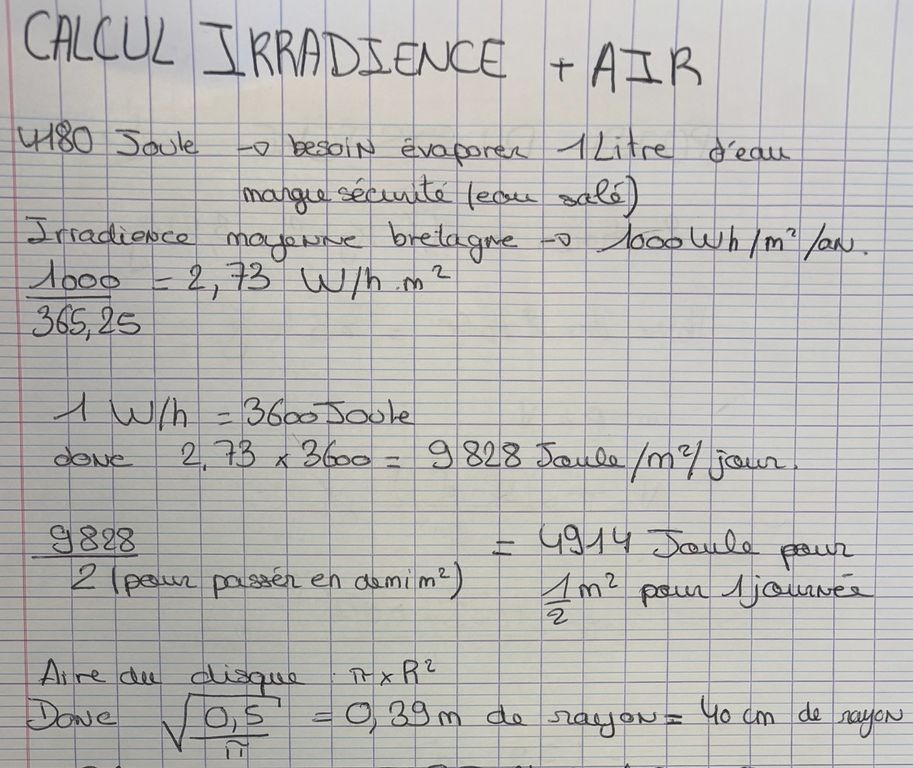 CALCUL IRRADIENCE + AIR
4180 Joule → besoin évaporer 1 Litre d'eau
marque sécurité (eau salé)
Irradience moyenne bretagne → 1000 Wh/m²/an.
1000 = 2,73 W/h.m²
365,25
1 W/h = 3600 Joule
donc 2,73 × 3600 = 9828 Joule/m²/jour.
9828 = 4914 Joule pour
2 (pour passér en demi m²) 1/2 m² pour 1 journée
Aire du disque : π × R²
Donc √0,5/π = 0,39 m de rayon = 40 cm de rayon